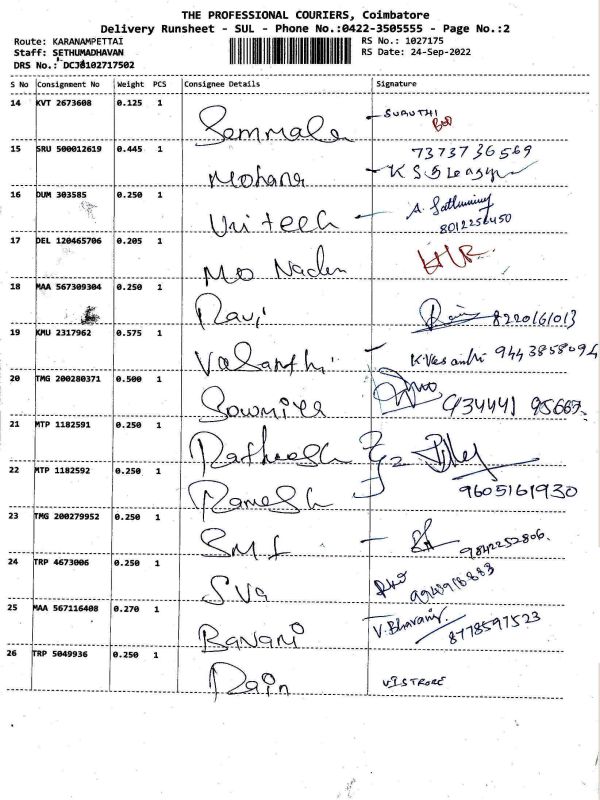 THE PROFESSIONAL COURIERS, Coimbatore
Delivery Runsheet - SUL - Phone No.:0422-3505555 - Page No.:2
Route: KARANAMPETTAI RS No.: 1027175
Staff: SETHUMADHAVAN RS Date: 24-Sep-2022
DRS No.: DCJ8102717502
S No Consignment No Weight PCS Consignee Details Signature
14 KVT 2673608 0.125 1 Semmala SURUTHI
15 SRU 500012619 0.445 1 Mohana 7373736569
16 DUM 303585 0.250 1 Unitech 8012256450
17 DEL 120465706 0.205 1 Mo Naden
18 MAA 567309304 0.250 1 Ravi 8220161013
19 KMU 2317962 0.575 1 Vasanthi K Vasanthi 9443858094
20 TMG 200280371 0.500 1 Sowmiya
21 MTP 1182591 0.250 1 Ratheesh
22 MTP 1182592 0.250 1 Ramesh 9605161930
23 TMG 200279952 0.250 1 SMF 9842252806
24 TRP 4673006 0.250 1 SVa
25 MAA 567116408 0.270 1 Banani V. Bhavani 8778597523
26 TRP 5049936 0.250 1 Rain